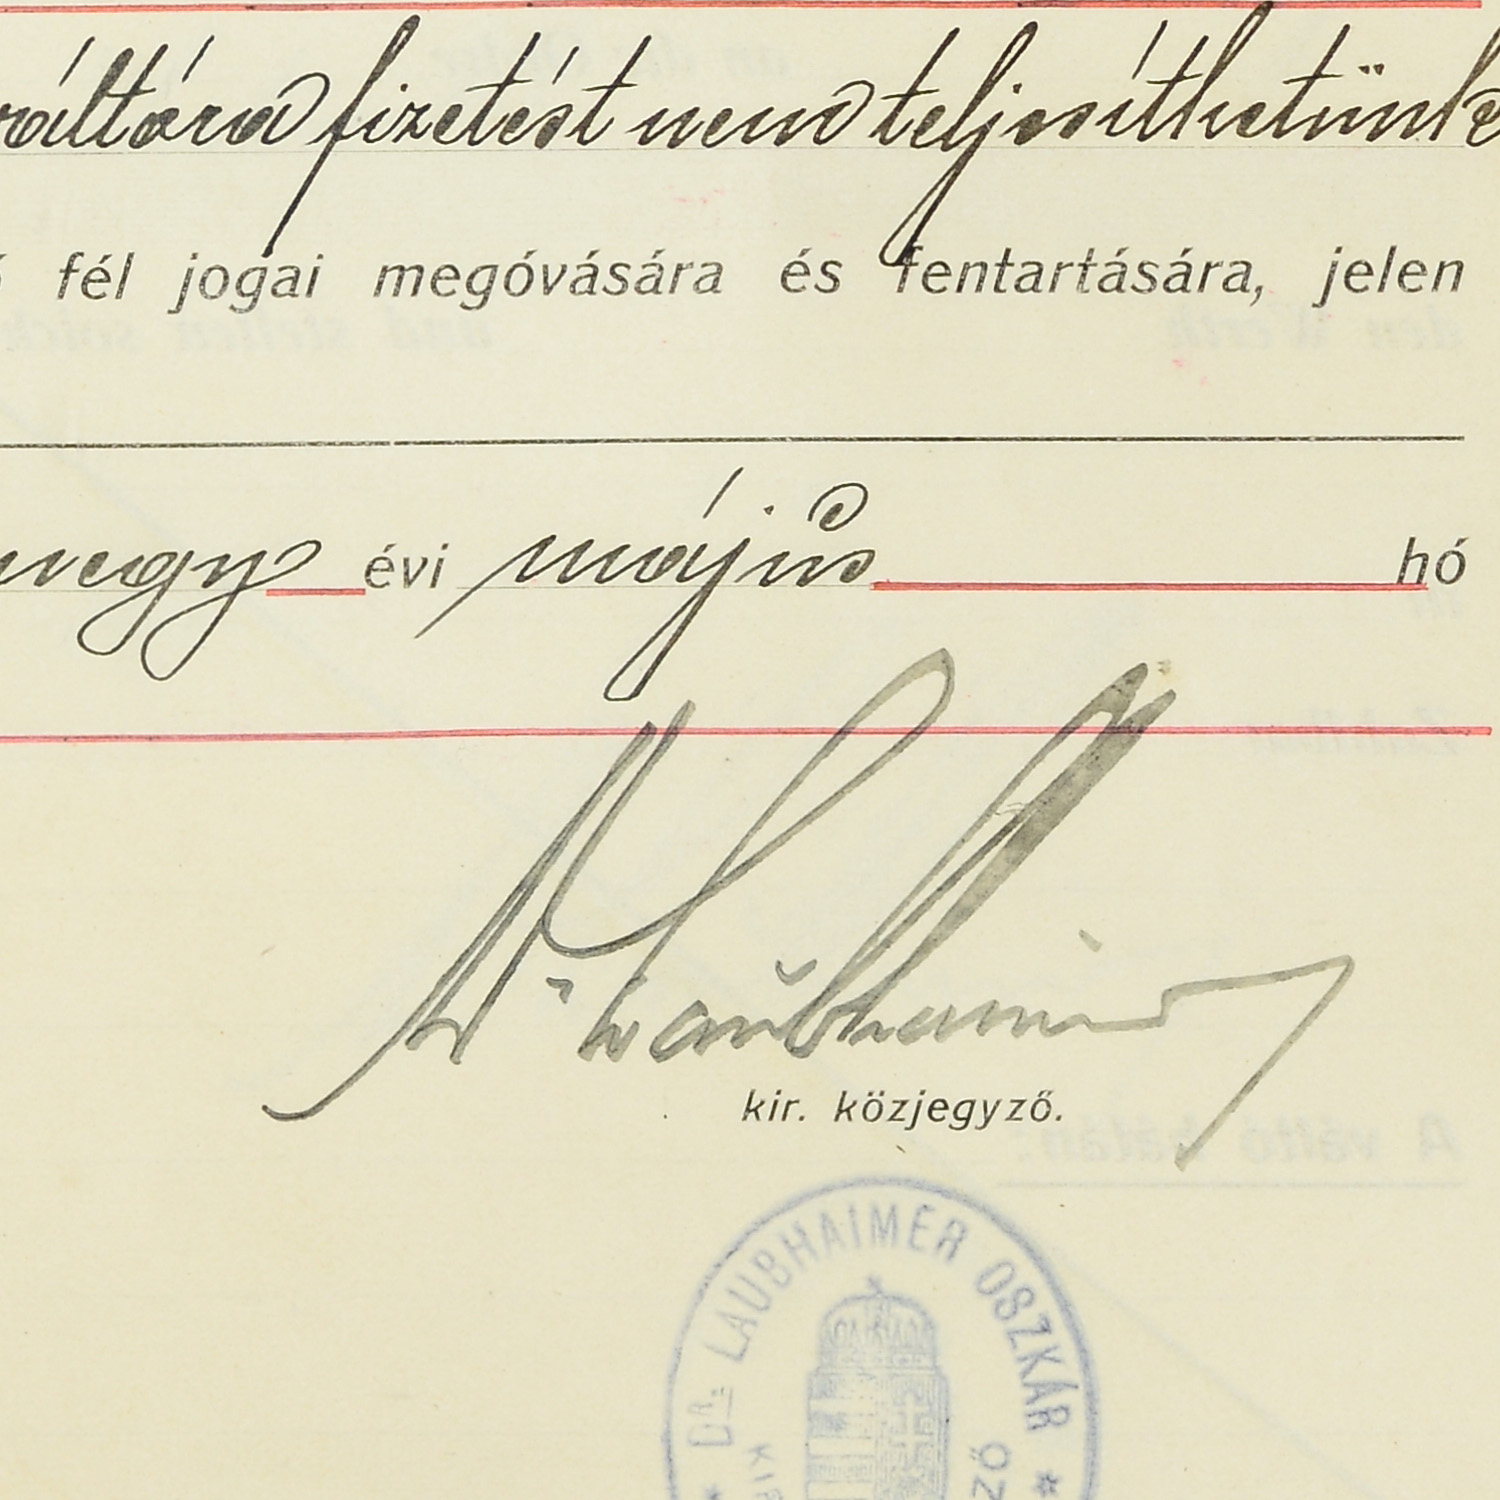 váltóra fizetést nem teljesíthetünk
fél jogai megóvására és fentartására, jelen
negy évi május hó
Dr Laubhaimer
kir. közjegyző.
DR. LAUBHAIMER OSZKÁR *